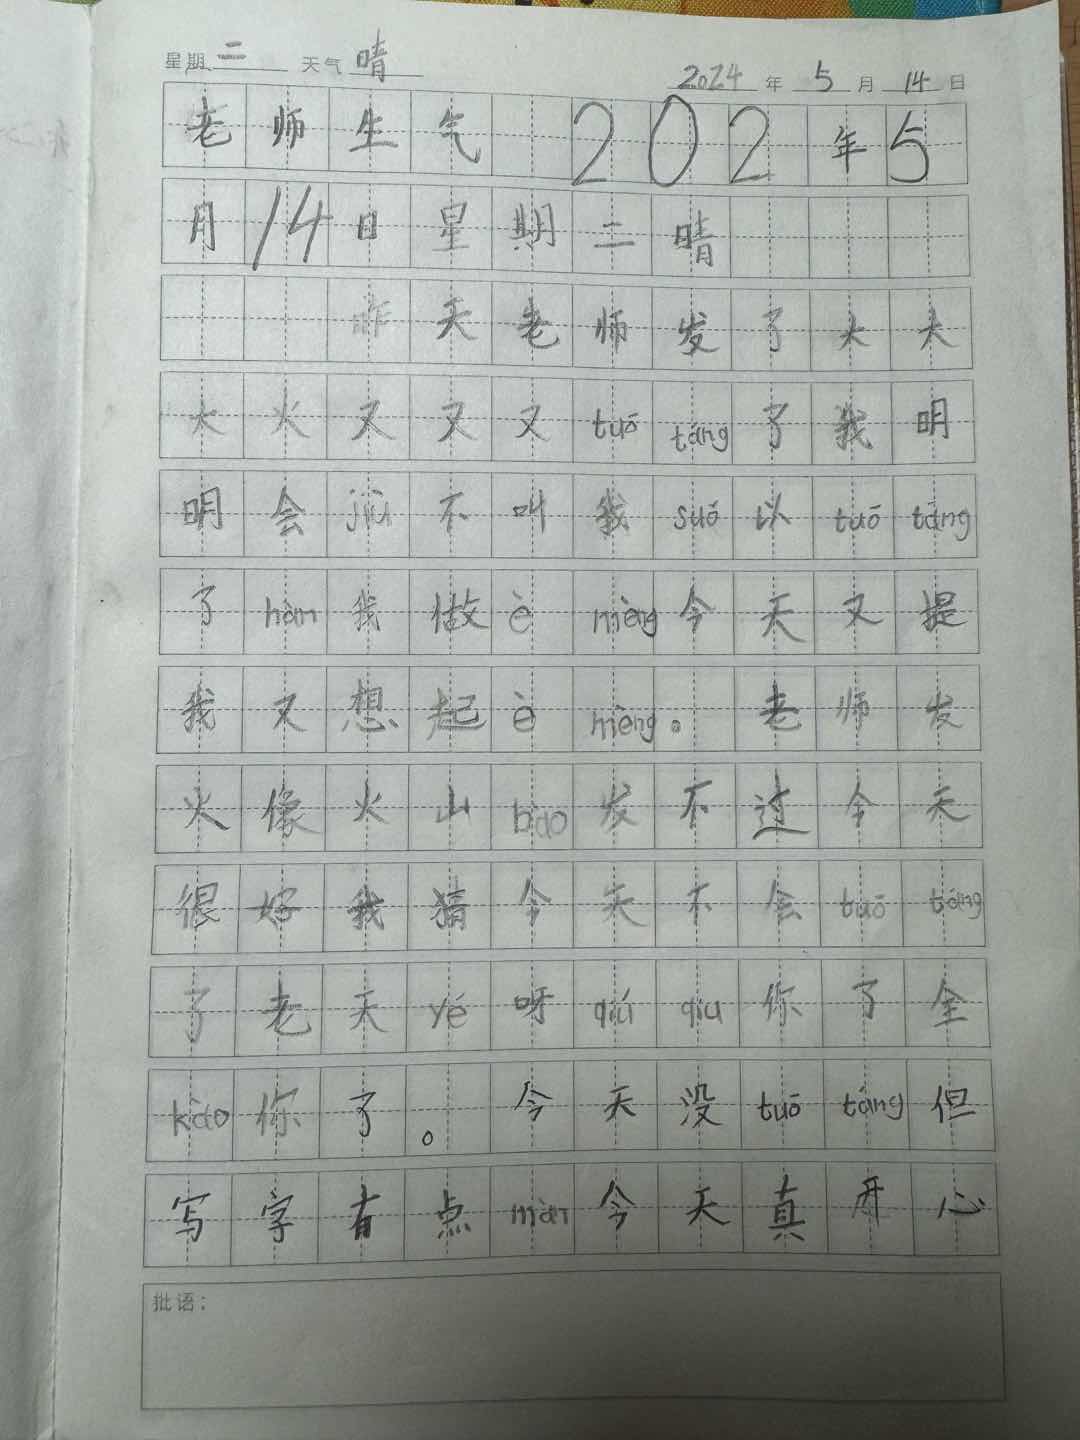 星期 二 天气 晴 2024 年 5 月 14 日
老师生气 202年5
月14日星期二晴
昨天老师发了大大
大火又又又tuō táng了我明
明会jiù不叫我suǒ以tuō táng
了hàn我做è mèng今天又提
我又想起è mèng。老师发
火像火山bào发不过今天
很好我猜今天不会tuō táng
了老天yé呀qiú qiu你了全
kào你了。今天没tuō táng但
写字有点màn今天真开心
批语：